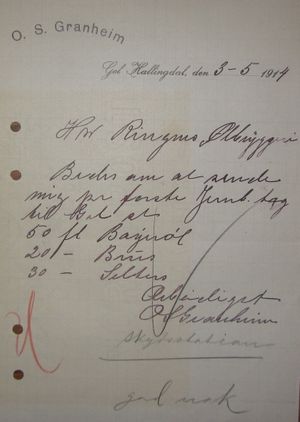 O. S. Granheim
Gol, Hallingdal, den 3-5 1914
Hrr Ringnes Ølbryggeri
Bedes om at sende
mig pr første Jernb. tog
til Gol st
50 fl Bayerøl
20 - Brus
30 - Selters
Ærbødigst
O S Granheim
Skydsstation
god nok